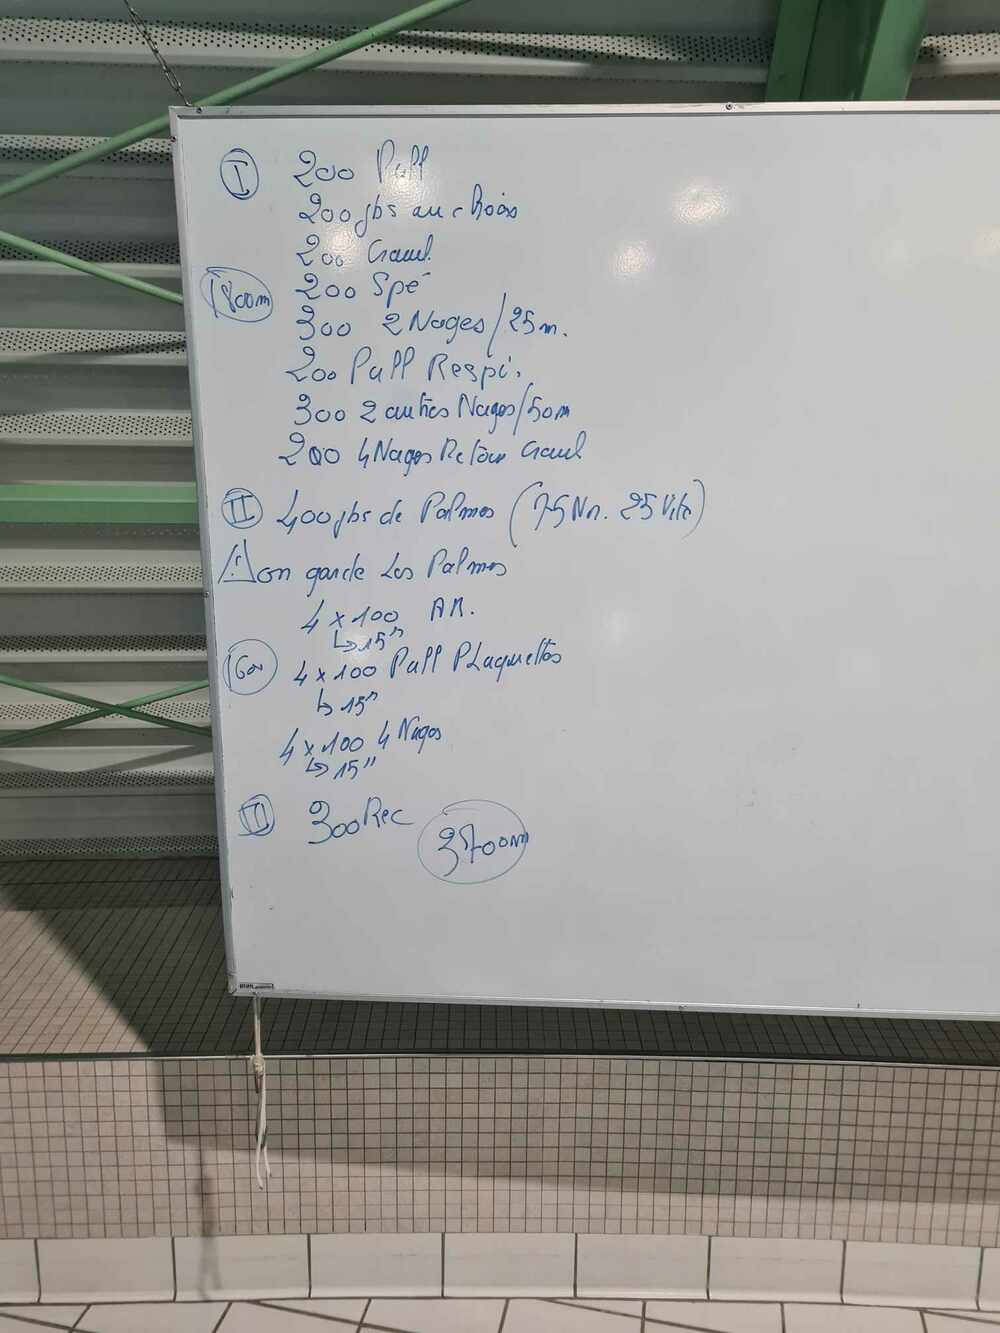 I 200 Pull
200 jbs au choix
200 Crawl
1800m 200 Spé
300 2 Nages/25m.
200 Pull Respi.
300 2 autres Nages/50m
200 4 Nages Retour Crawl
II 400 jbs de Palmes (75 Nn. 25 Vite)
! on garde les Palmes
4 x 100 AR.
↳ 15"
1600 4 x 100 Pull Plaquettes
↳ 15"
4 x 100 4 Nages
↳ 15"
III 300 Rec
3700m